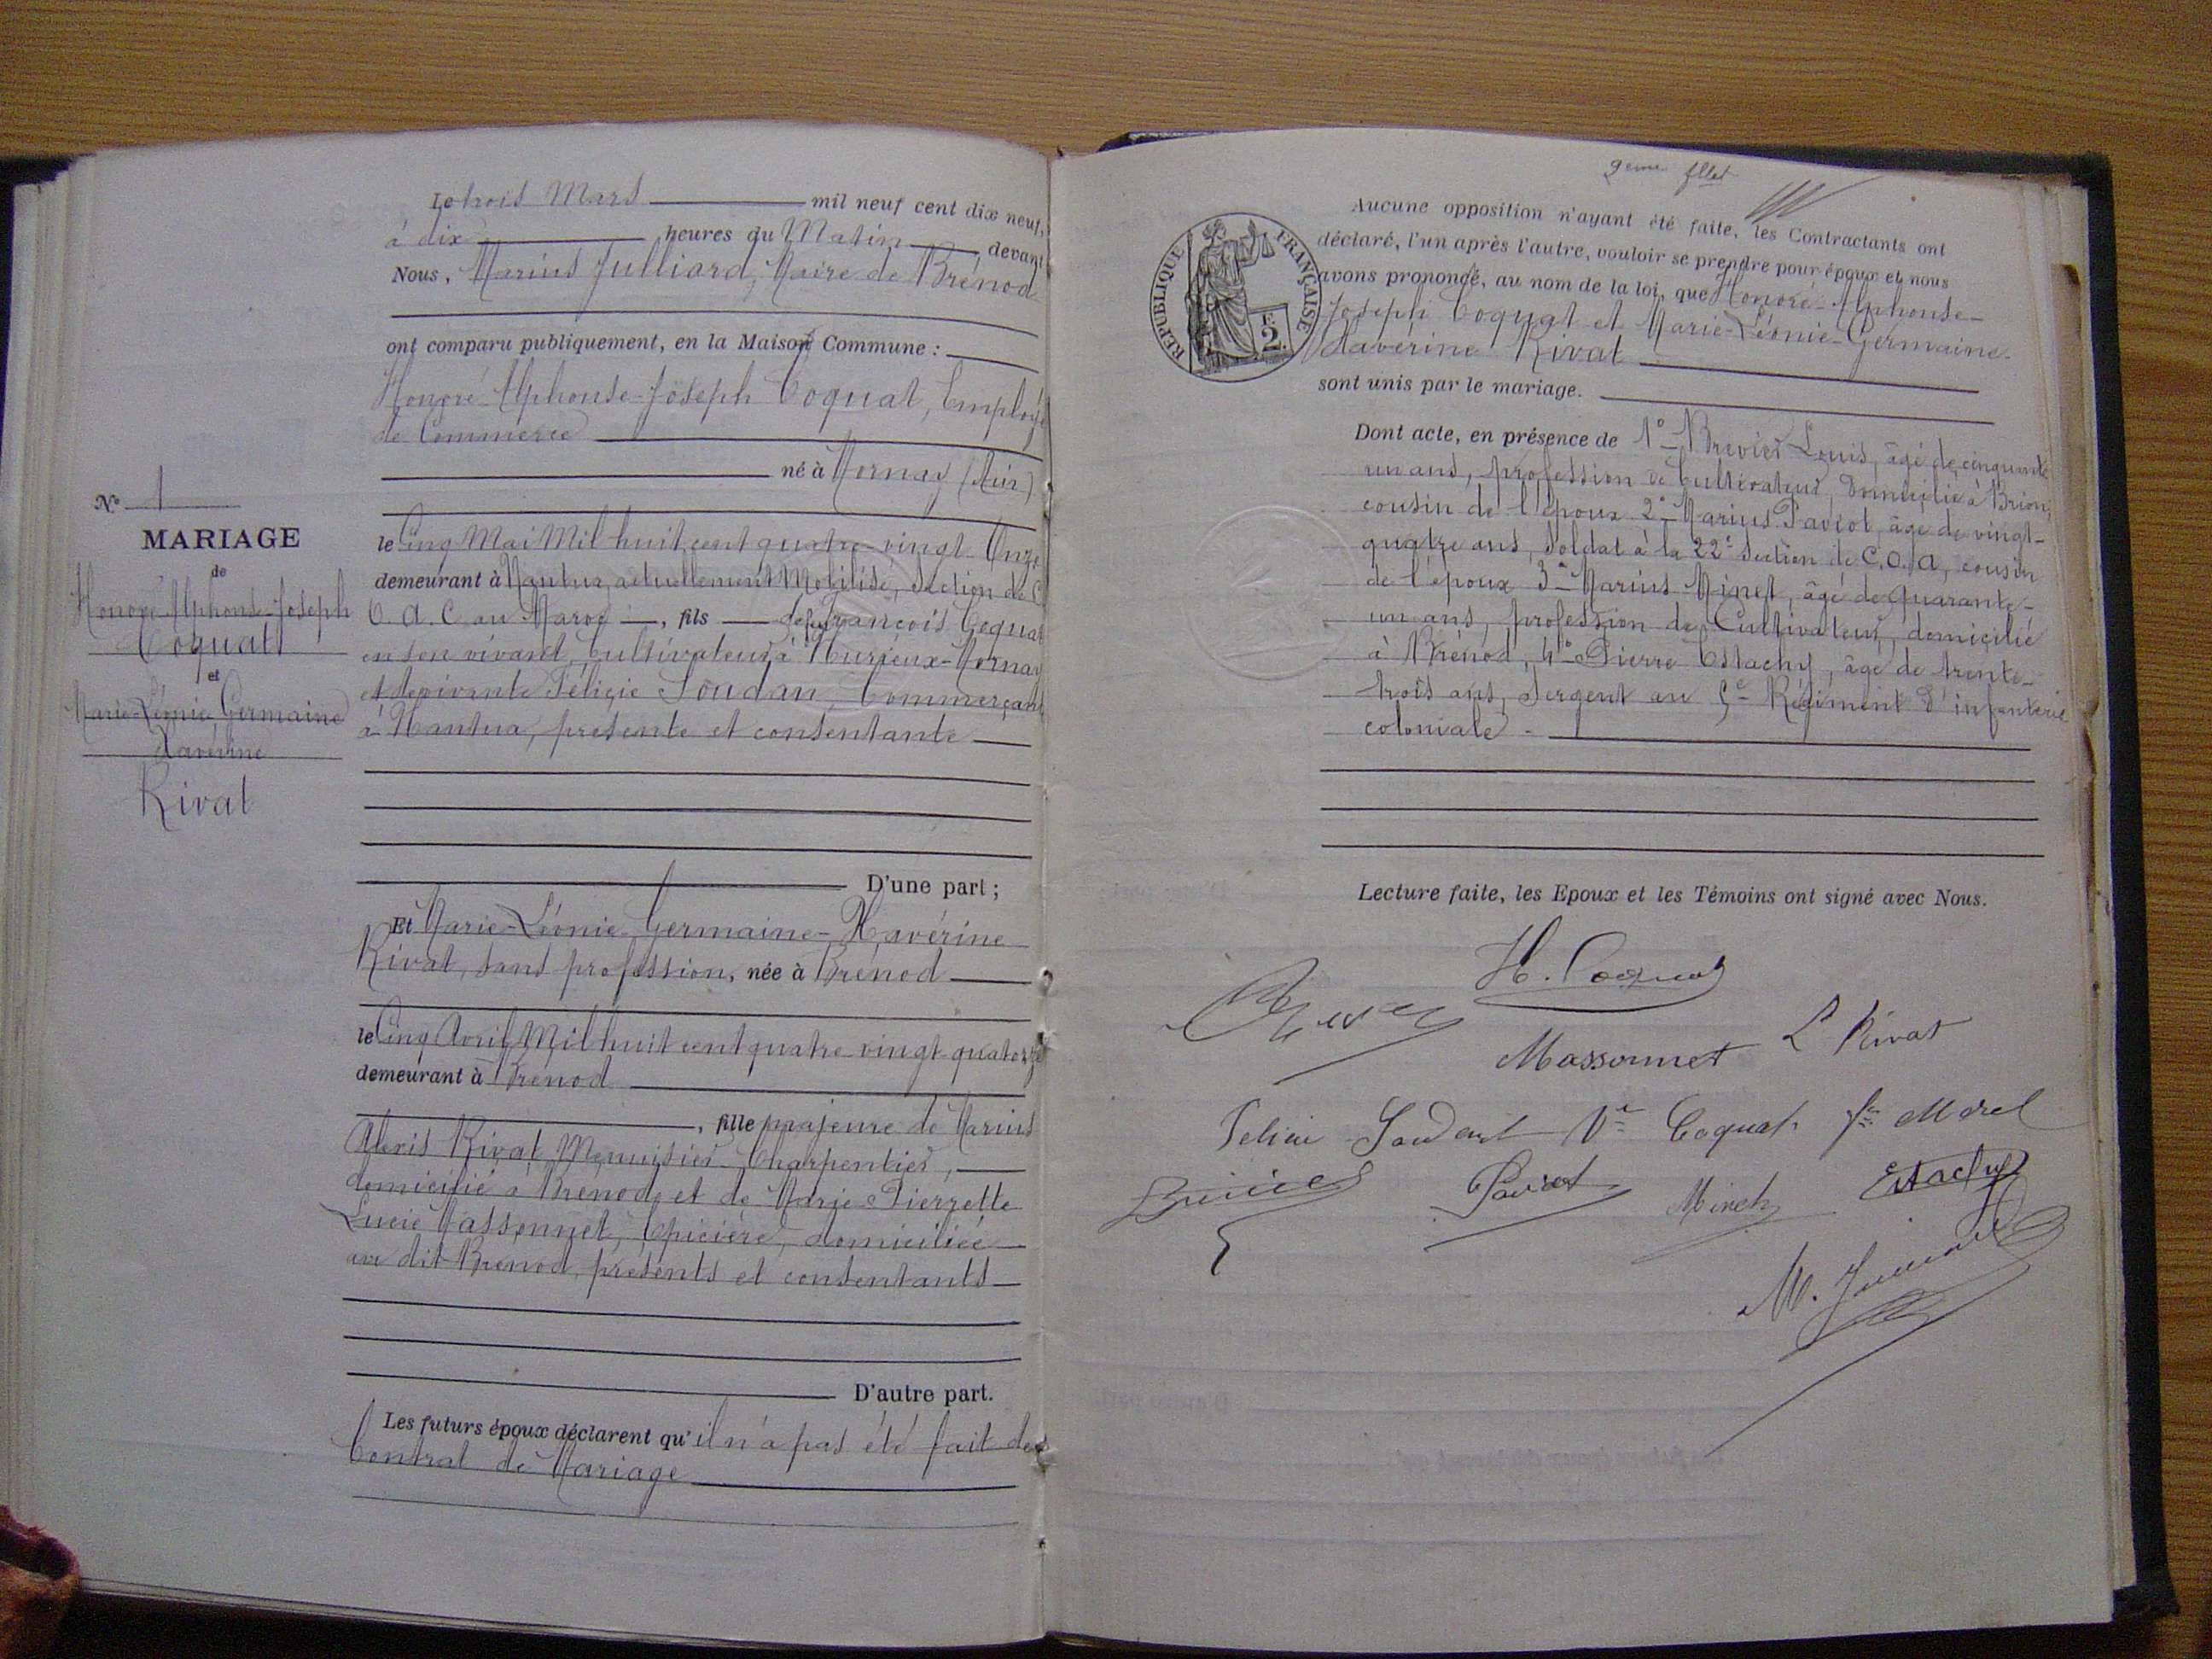 Le trois Mars mil neuf cent dix neuf,
à dix heures du Matin devant
Nous, Marius Julliard, Maire de Brénod
ont comparu publiquement, en la Maison Commune :
Honoré-Alphonse-Joseph Coquat, Employé
de Commerce
né à Mornay (Ain)
le Cinq Mai Mil huit cent quatre-vingt-Onze
demeurant à Nantua, actuellement Mobilisé, Section de C.
O. A. C au Maroc, fils de feu François Coquat
en son vivant, Cultivateur à Nurieux-Mornay
et de vivante Félicie Soudan, Commerçante
à Nantua, présente et consentante
D'une part ;
Et Marie-Léonie-Germaine-Xavérine
Rivat, sans profession, née à Brénod
le Cinq Avril Mil huit cent quatre-vingt-quatorze
demeurant à Brénod
, fille majeure de Marius
Alexis Rivat, Menuisier-Charpentier,
domicilié à Brénod, et de Marie-Pierrette
Lucie Massonnet, Epicière, domiciliée
au dit Brénod, présents et consentants
D'autre part.
Les futurs époux déclarent qu'il n'a pas été fait de
Contrat de Mariage
N° 1
MARIAGE
de
Honoré Alphonse-Joseph
Coquat
et
Marie-Léonie Germaine
Xavérine
Rivat
2eme fllet
RÉPUBLIQUE FRANÇAISE
2F
Aucune opposition n'ayant été faite, les Contractants ont
déclaré, l'un après l'autre, vouloir se prendre pour époux et nous
avons prononcé, au nom de la loi, que Honoré-Alphonse-
Joseph Coquat et Marie-Léonie-Germaine-
Xavérine Rivat
sont unis par le mariage.
Dont acte, en présence de 1°- Brevier Louis, âgé de cinquante
un ans, profession de Cultivateur, domicilié à Brion,
cousin de l'époux 2°- Marius Paviot, âgé de vingt-
quatre ans, soldat à la 22e Section de C.O.A, cousin
de l'époux 3°- Marius Minet, âgé de quarante-
un ans, profession de Cultivateur, domicilié
à Brénod, 4°- Pierre Estachy, âgé de trente-
trois ans, sergent au 5e Régiment d'infanterie
coloniale -
Lecture faite, les Epoux et les Témoins ont signé avec Nous.
H. Coquat
Massonnet L Rivat
Felicie Soudant Ve Coquat Morel
Paviot Minet Estachy
M. Julliard